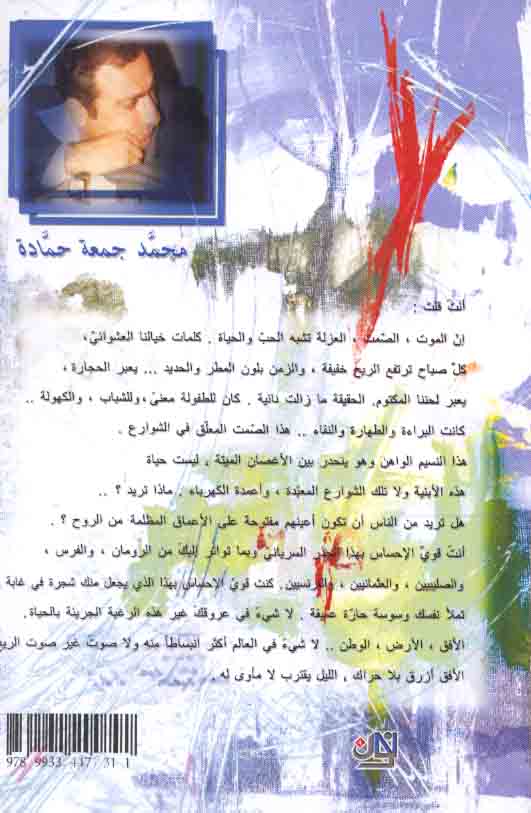 محمَّد جمعة حمَّادة
أنتَ قلتَ :
إنّ الموت ، الصّمت ، العزلة تشبه الحبّ والحياة . كلمات خيالنا العشوائيّ ،
كلّ صباح ترتفع الريح خفيفة ، والزمن بلون المطر والحديد ... يعبر الحجارة ،
يعبر لحننا المكتوم. الحقيقة ما زالت دانية . كان للطفولة معنىً ، وللشباب ، والكهولة ..
كانت البراءة والطهارة والنقاء .. هذا الصّمت المعلّق في الشوارع .
هذا النسيم الواهن وهو ينحدر بين الأغصان الميتة . ليست حياة
هذه الأبنية ولا تلك الشوارع المعبّدة ، وأعمدة الكهرباء . ماذا تريد ؟ ..
هل تريد من الناس أن تكون أعينهم مفتوحة على الأعماق المظلمة من الروح ؟ .
أنتَ قويّ الإحساس بهذا الجذر السريانيّ وبما تواتر إليك من الرومان ، والفرس ،
والصليبيين ، والعثمانيين ، والفرنسيين. كنت قويّ الإحساس بهذا الذي يجعل منك شجرة في غابة
تملأ نفسك وسوسة حارّة عميقة . لا شيء في عروقك غير هذه الرغبة الجريئة بالحياة.
الأفق ، الأرض ، الوطن .. لا شيء في العالم أكثر انبساطاً منه ولا صوتَ غير صوت
الأفق أزرق بلا حراك ، الليل يقترب لا مأوى له .
978 9933 437 73 1